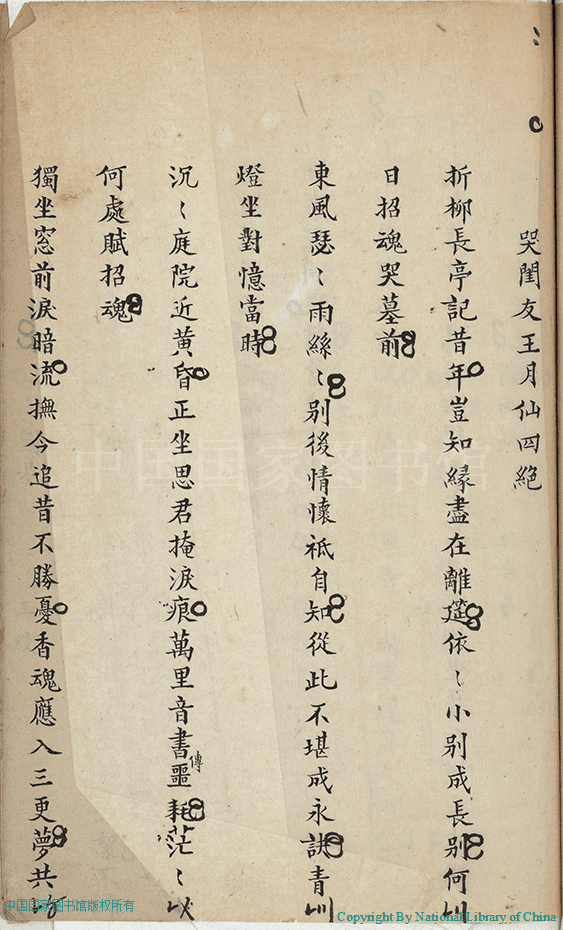 哭閨友王月仙四絕
折柳長亭記昔年豈知緣盡在離筵依〻小別成長別何
日招魂哭墓前
東風瑟〻雨絲〻別後情懷袛自知從此不堪成永訣青
燈坐對憶當時
沉〻庭院近黃昏正坐思君掩淚痕萬里音書傳噩耗茫〻
何處賦招魂
獨坐窓前淚暗流撫今追昔不勝憂香魂應入三更夢共
中国国家图书馆
中国国家图书馆版权所有
Copyright By National Library of China